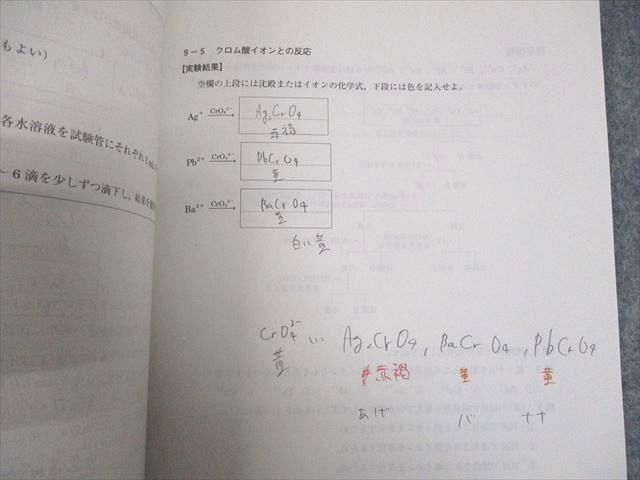 もよい)
各水溶液を試験管にそれぞれ1mL
~6滴を少しずつ滴下し,結果を観
9-5 クロム酸イオンとの反応
【実験結果】
空欄の上段には沈殿またはイオンの化学式,下段には色を記入せよ。
Ag⁺ CrO₄²⁻→ Ag₂CrO₄
赤褐
Pb²⁺ CrO₄²⁻→ PbCrO₄
黄
Ba²⁺ CrO₄²⁻→ BaCrO₄
黄
白い黄
CrO₄²⁻ … Ag₂CrO₄, BaCrO₄, PbCrO₄
黄 赤褐 黄 黄
あげ バ ナナ